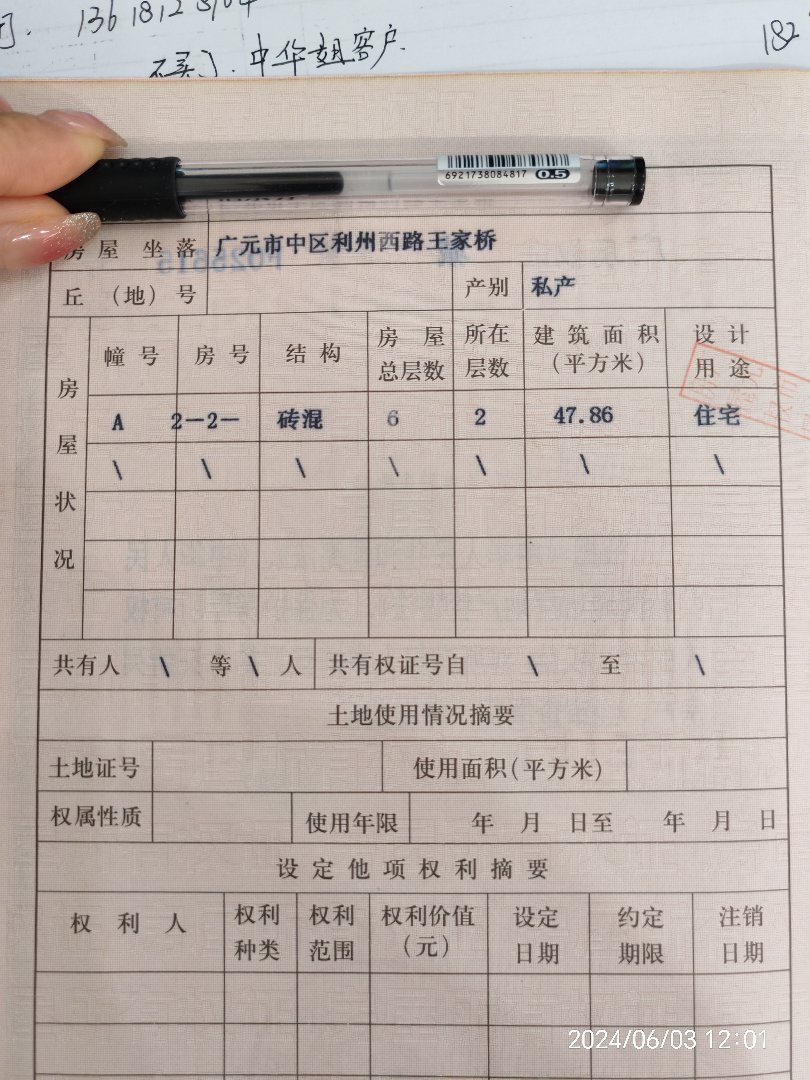 不买了.中华姐客户.
182
6921738084817 0.5
房屋坐落 广元市中区利州西路王家桥
丘（地）号 产别 私产
房屋状况 幢号 房号 结构 房屋总层数 所在层数 建筑面积（平方米） 设计用途
A 2-2- 砖混 6 2 47.86 住宅
\ \ \ \ \ \ \
共有人 \ 等 \ 人 共有权证号自 \ 至 \
土地使用情况摘要
土地证号 使用面积(平方米)
权属性质 使用年限 年 月 日至 年 月 日
设定他项权利摘要
权利人 权利种类 权利范围 权利价值（元） 设定日期 约定期限 注销日期
2024/06/03 12:01